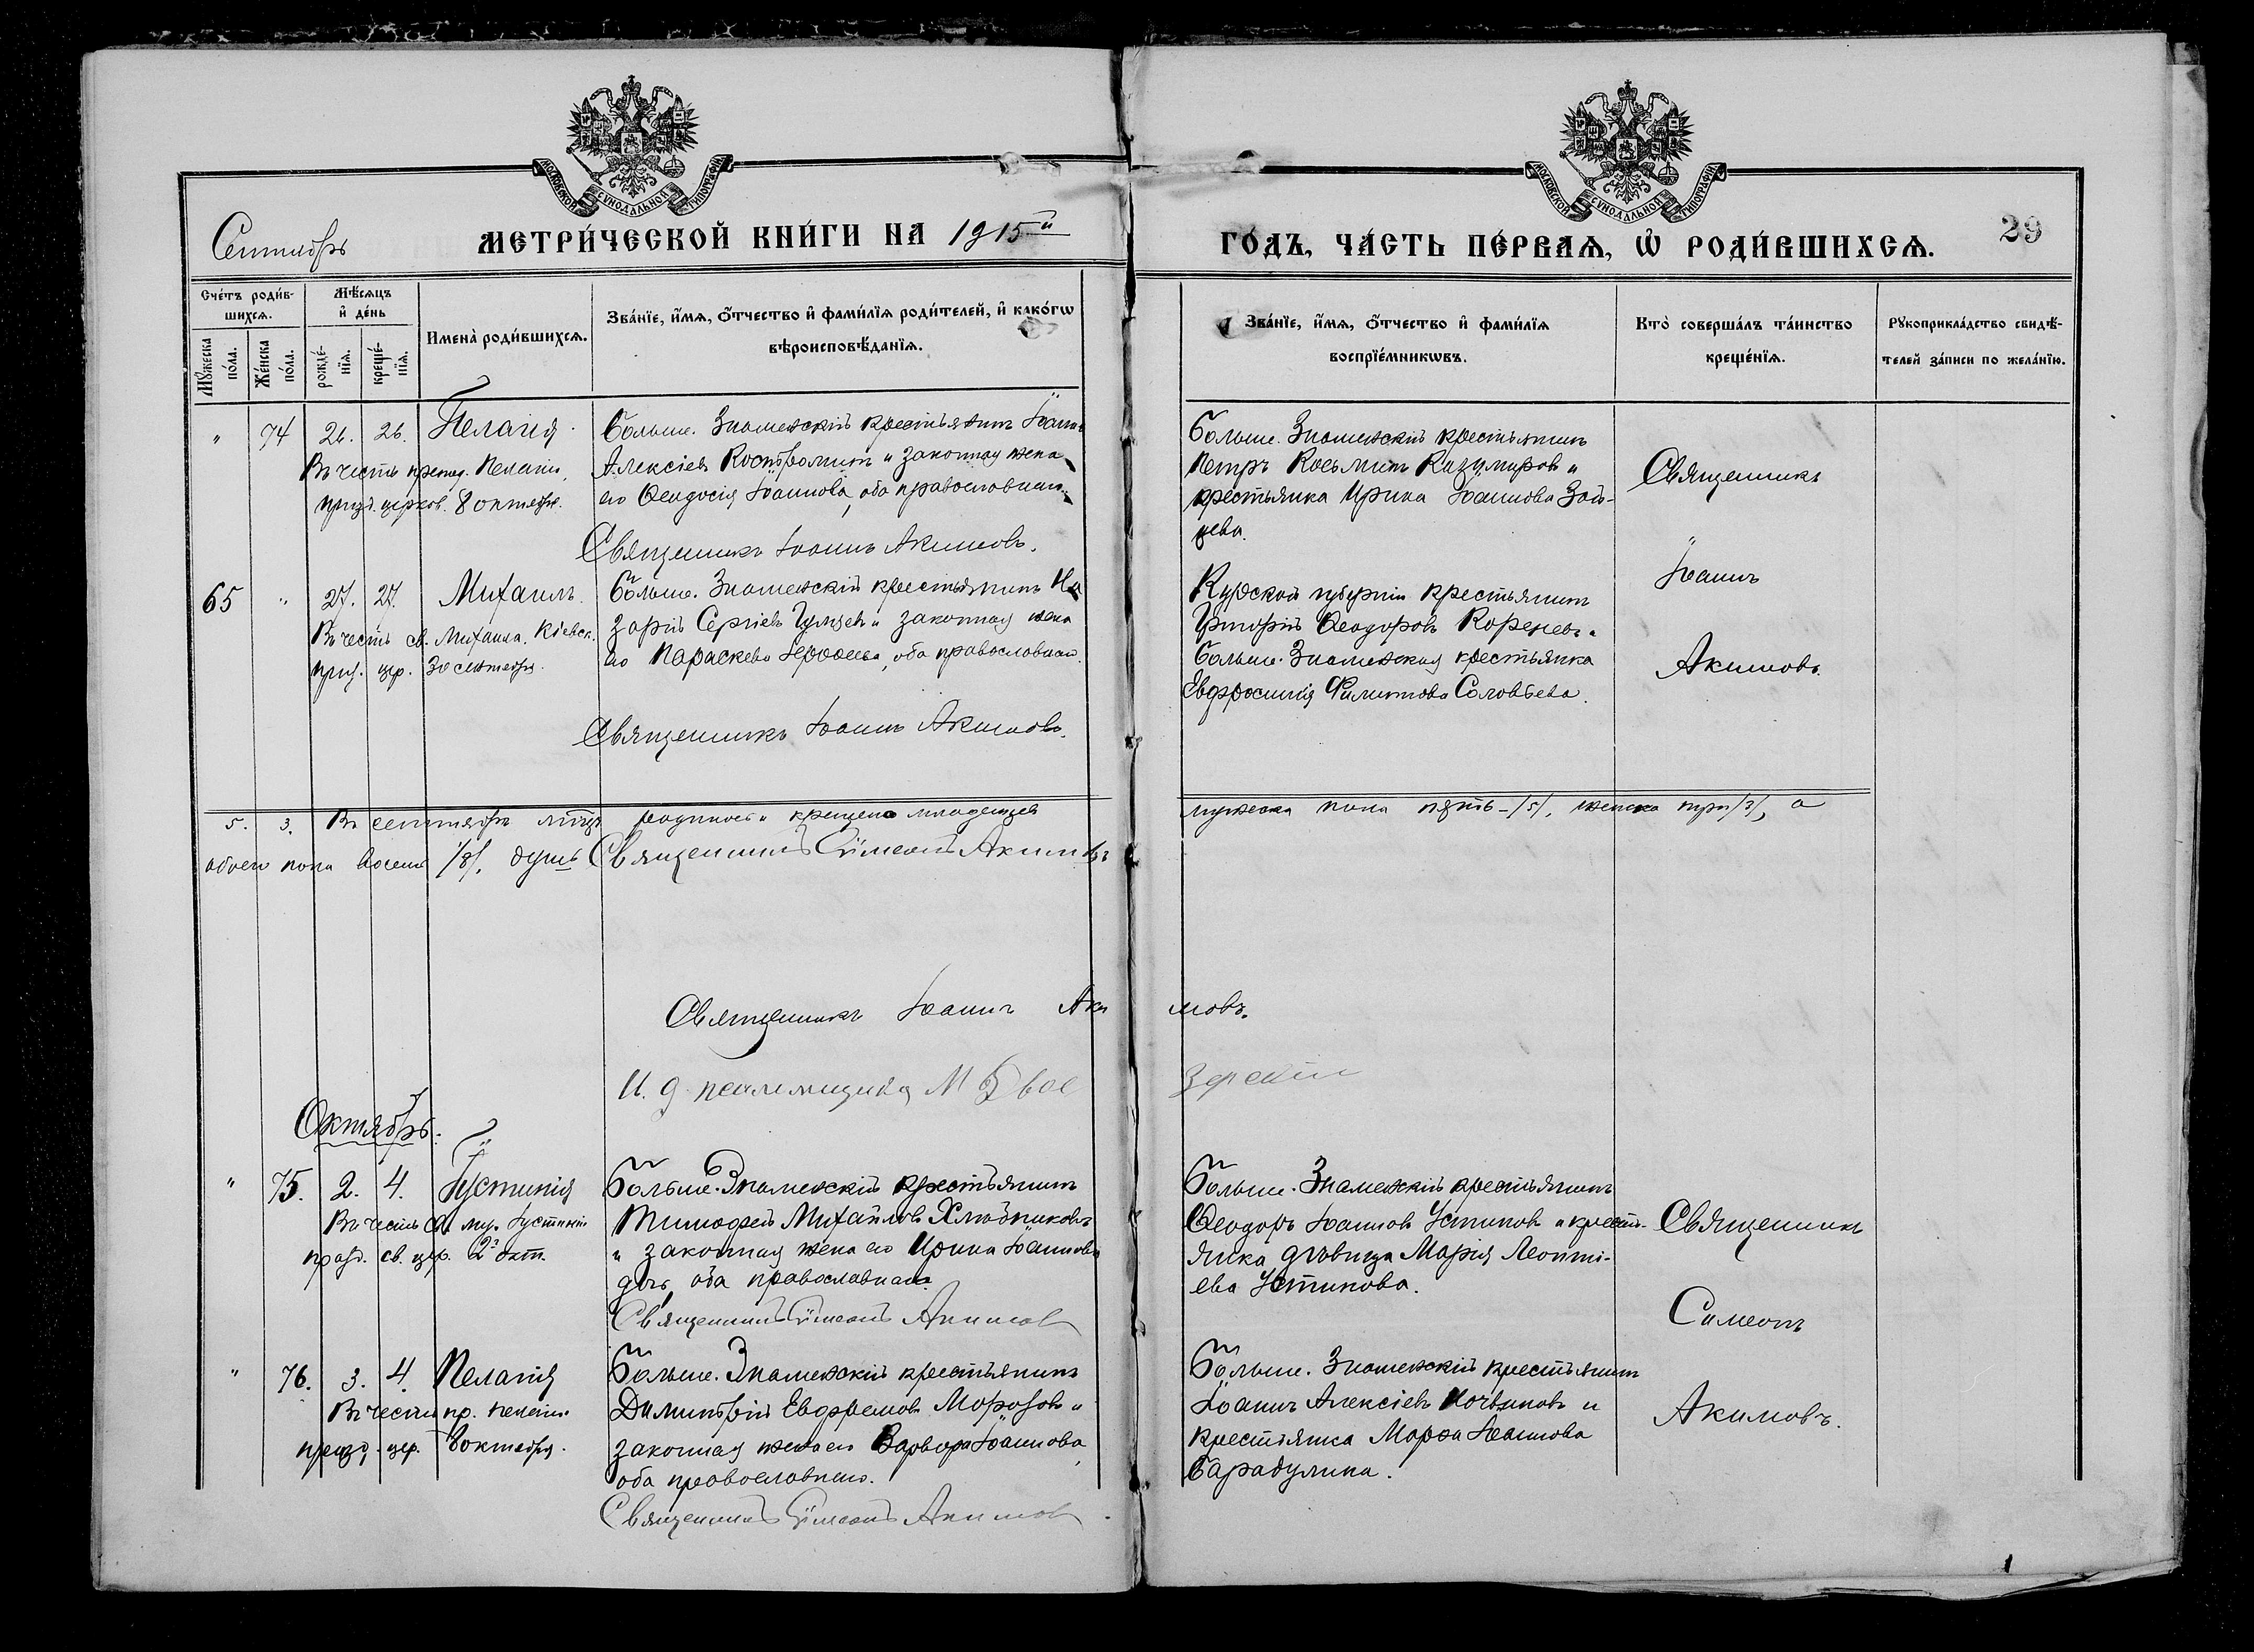 МОСКОВСКОЙ СѴНОДАЛЬНОЙ ТИПОГРАФІИ
МОСКОВСКОЙ СѴНОДАЛЬНОЙ ТИПОГРАФІИ
Сентябрь
МЕТРИ́ЧЕСКОЙ КНИ́ГИ НА 1915й
ГО́ДЪ, ЧА́СТЬ ПЕ́РВАѦ, Ѡ҆ РОДИ́ВШИХСѦ.
29
Сче́тъ роди́в-
шихсѧ.
Мꙋ́жеска по́ла.
Же́нска по́ла.
Мѣ́сѧцъ
и҆ де́нь
рожде́-
нїѧ.
креще́-
нїѧ.
Имена̀ роди́вшихсѧ.
Зва́нїе, и҆́мѧ, ѻ҆́тчество и҆ фами́лїѧ роди́телей, и҆ како́гѡ
вѣроисповѣ́данїѧ.
Зва́нїе, и҆́мѧ, ѻ҆́тчество и҆ фами́лїѧ
воспрїе́мникѡвъ.
Кто̀ соверша́лъ та́инство
креще́нїѧ.
Рꙋкоприкла́дство свидѣ́-
телей за́писи по жела́нїю.
" 74 26. 26. Пелагія
Въ честь препод. Пелагіи,
празд. церков. 8 октября.
Больше. Знаменскій крестьянинъ Іоаннъ
Алексіевъ Костроминъ и законная жена
его Ѳеодосія Іоаннова, оба православныя.
Священникъ Іоаннъ Акимовъ.
Больше. Знаменскій крестьянинъ
Петръ Косьминъ Казимировъ и
крестьянка Ирина Іоаннова Зай-
цева.
Священникъ
Іоаннъ
Акимовъ.
65 " 27. 27. Михаилъ.
Въ честь св. Михаила. Кіевск.
праз. цер. 30 сентября.
Больше. Знаменскій крестьянинъ На
зарій Сергіевъ и законная жена
его Параскева Іероѳеева, оба православныя.
Священникъ Іоаннъ Акимовъ.
Курской губерніи крестьянинъ
Григорій Ѳеодоровъ Кореневъ и
Больше. Знаменская крестьянка
Евфросинія Филиппова Соловьева.
5. 3. Въ сентябрѣ мѣсяцѣ родилось и крещено младенцевъ
мужеска пола пять-/5/, женска три /3/, а
обоего пола восемь /8/. душъ Священникъ Сѵмеонъ Акимовъ
Священникъ Іоаннъ Акимовъ.
И. д. псаломщика М
зерскій
Октябрь.
" 75. 2. 4. Іустинія
Въ честь св. муч. Іустиніи
празд. св. цер. 2го окт.
Больше. Знаменскій крестьянинъ
Тимофей Михайловъ Хлѣбниковъ
и законная жена его Ирина Іоаннова
дочь, оба православныя.
Священникъ Сѵмеонъ Акимовъ
Больше. Знаменскій крестьянинъ
Ѳеодоръ Іоанновъ Устиновъ и кресть-
янка дѣвица Марія Леонті-
ева Устинова.
Священникъ
Симеонъ
Акимовъ.
" 76. 3. 4. Пелагія
Въ честь пр. Пелагіи.
празд. цер. 8 октября.
Больше. Знаменскій крестьянинъ
Димитрій Евфремовъ Морозовъ и
законная жена его Варвара Іоаннова,
оба православныя.
Священникъ Сѵмеонъ Акимовъ
Больше. Знаменскій крестьянинъ
Іоаннъ Алексіевъ и
крестьянка Марѳа Іоаннова
Барабулина.